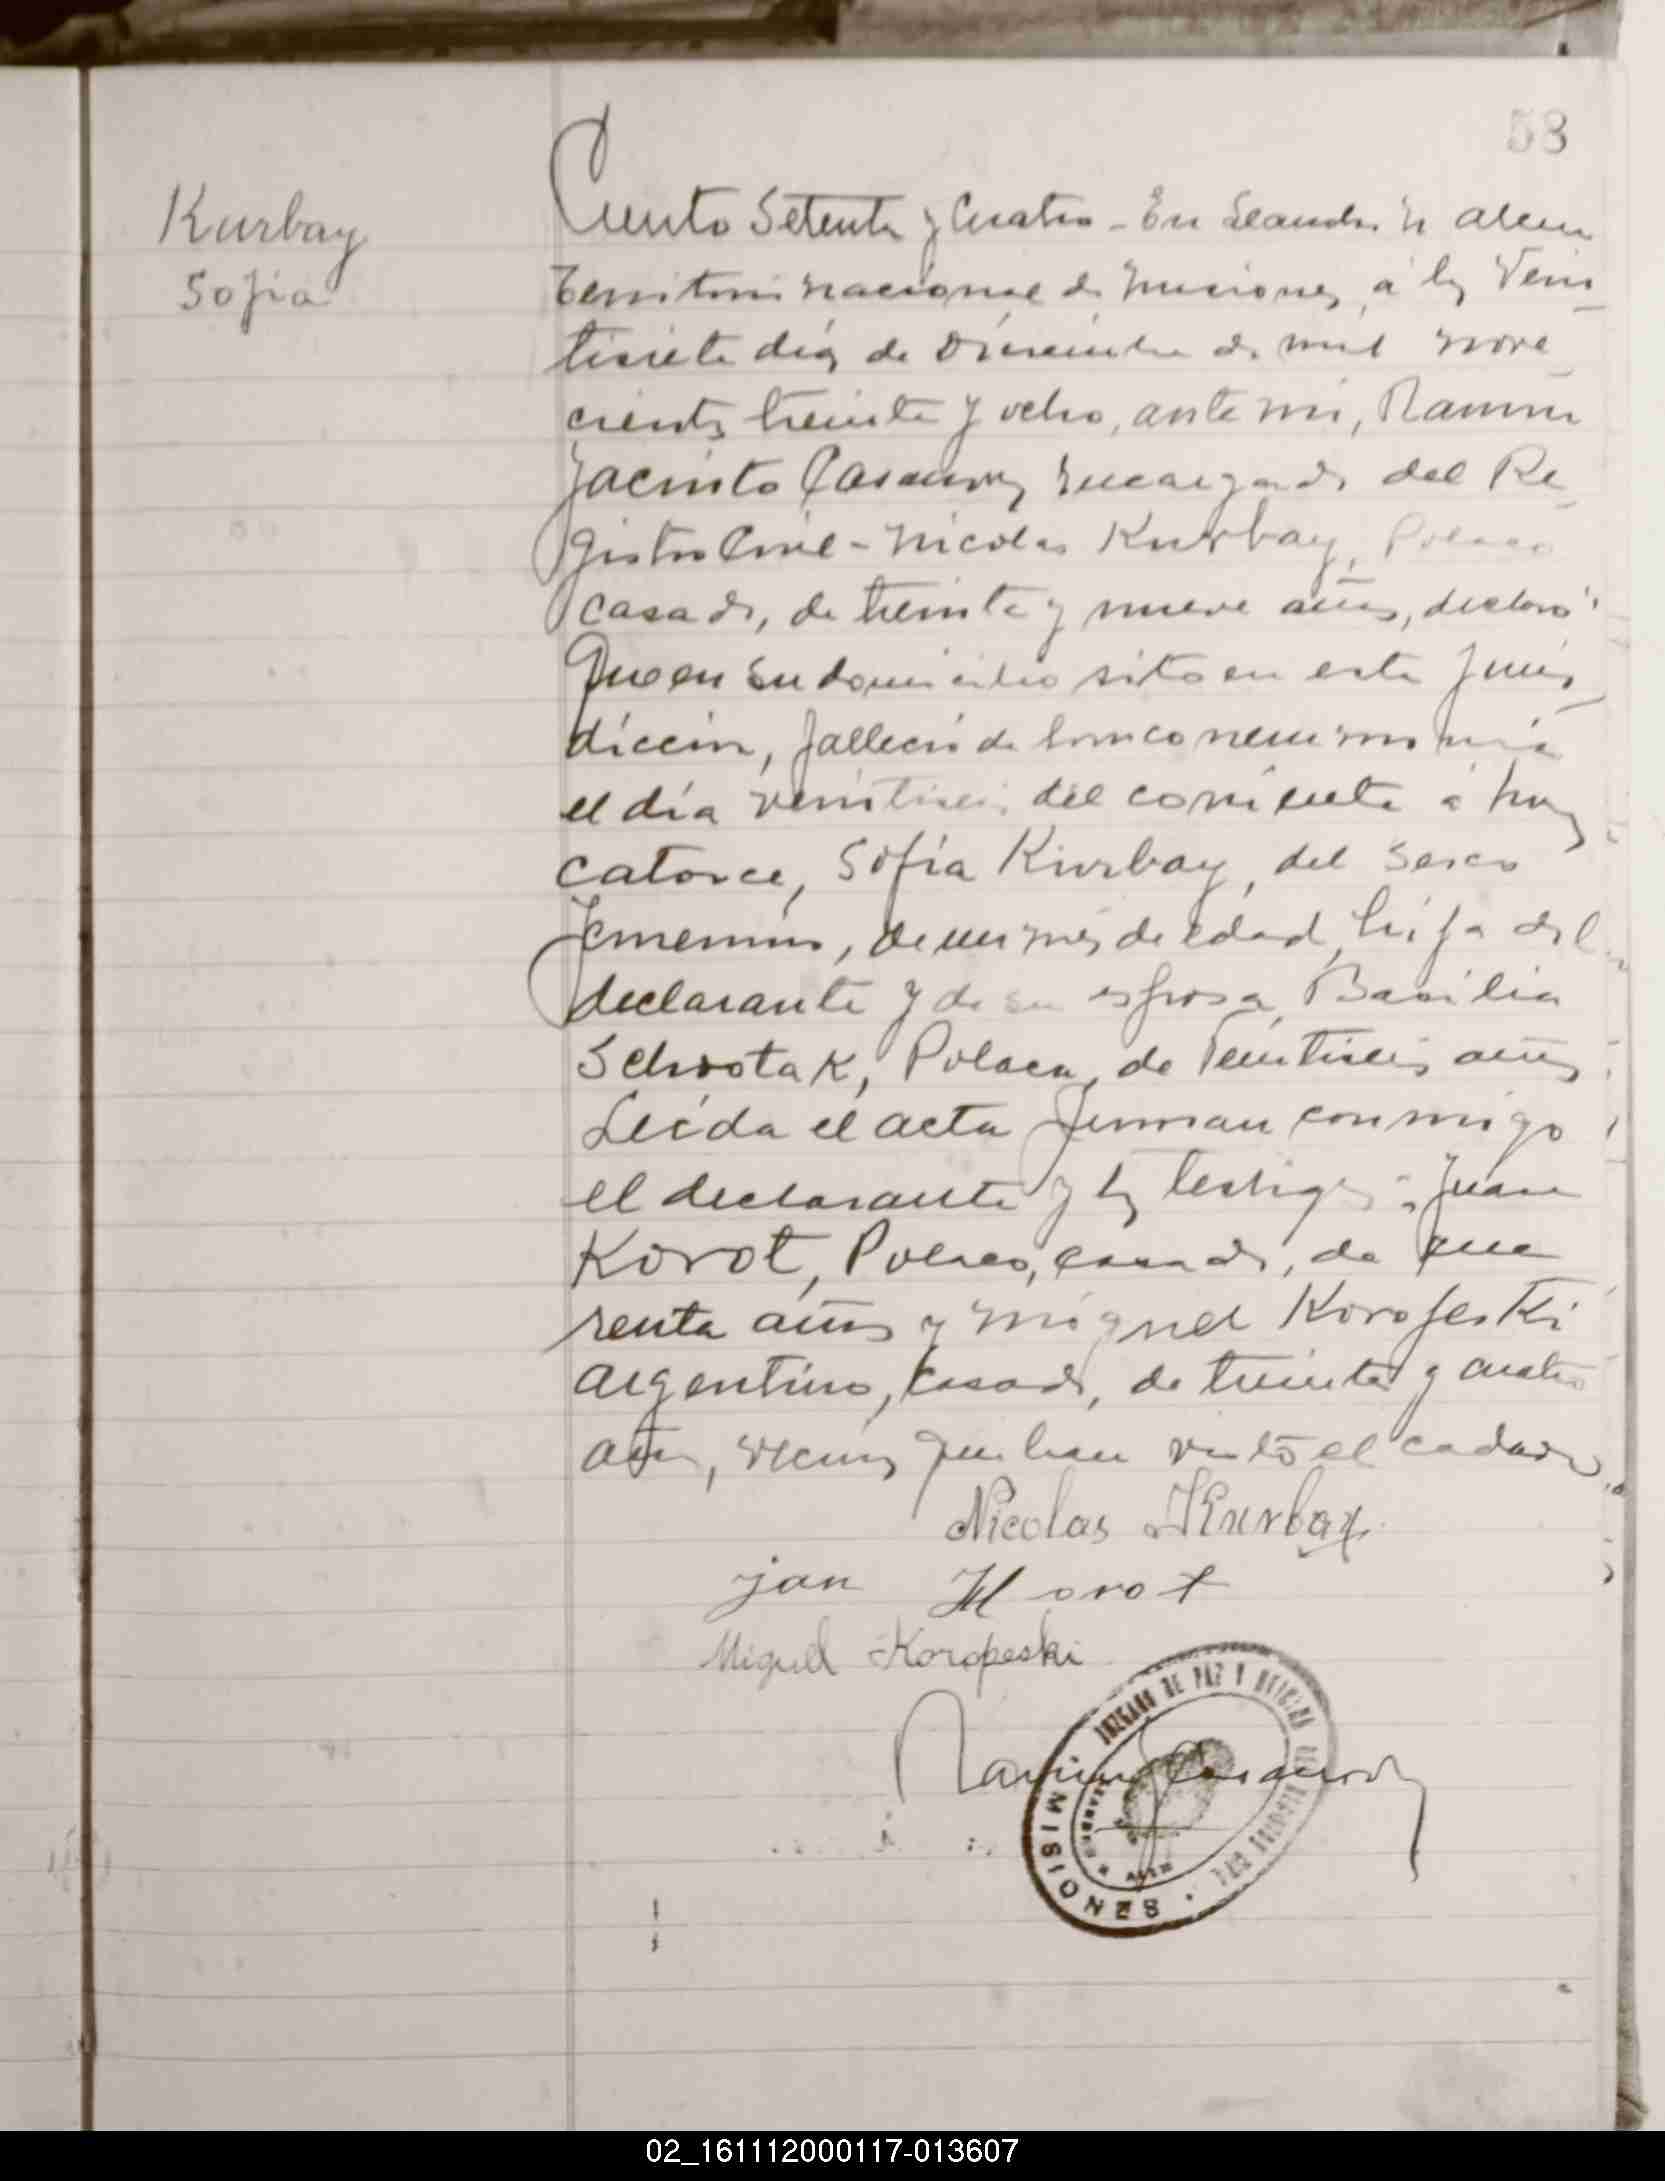 58
Kurbay
Sofia
Ciento Setenta y Cuatro - En Leandro N Alem
Territorio nacional de Misiones, á los Vein
tisiete días de Diciembre de mil nove
cientos treinta y ocho, ante mi, Ramón
Jacinto Encargado del Re
gistro Civil - Nicolas Kurbay, Polaco
casado, de treinta y nueve años, declaró:
Que en su domicilio sito en esta juris
dicción, falleció de bronconeumonía
el día veintiseis del corriente á hora
catorce, Sofía Kurbay, del sexo
femenino, de un mes de edad, hija del
declarante y de su esposa Basilia
Schostak, Polaca, de Veintiseis años
Leída el acta firman conmigo
el declarante y los testigos: Juan
Korot, Polaco, casado, de cua
renta años y Miguel Koropeski
argentino, casado, de treinta y cuatro
años, vecinos que han visto el cadaver
Nicolas Kurbay
jan Korot
Miguel Koropeski
Ramón
JUZGADO DE PAZ Y OFICINA DEL REGISTRO CIVIL
LEANDRO N ALEM
MISIONES
02_161112000117-013607